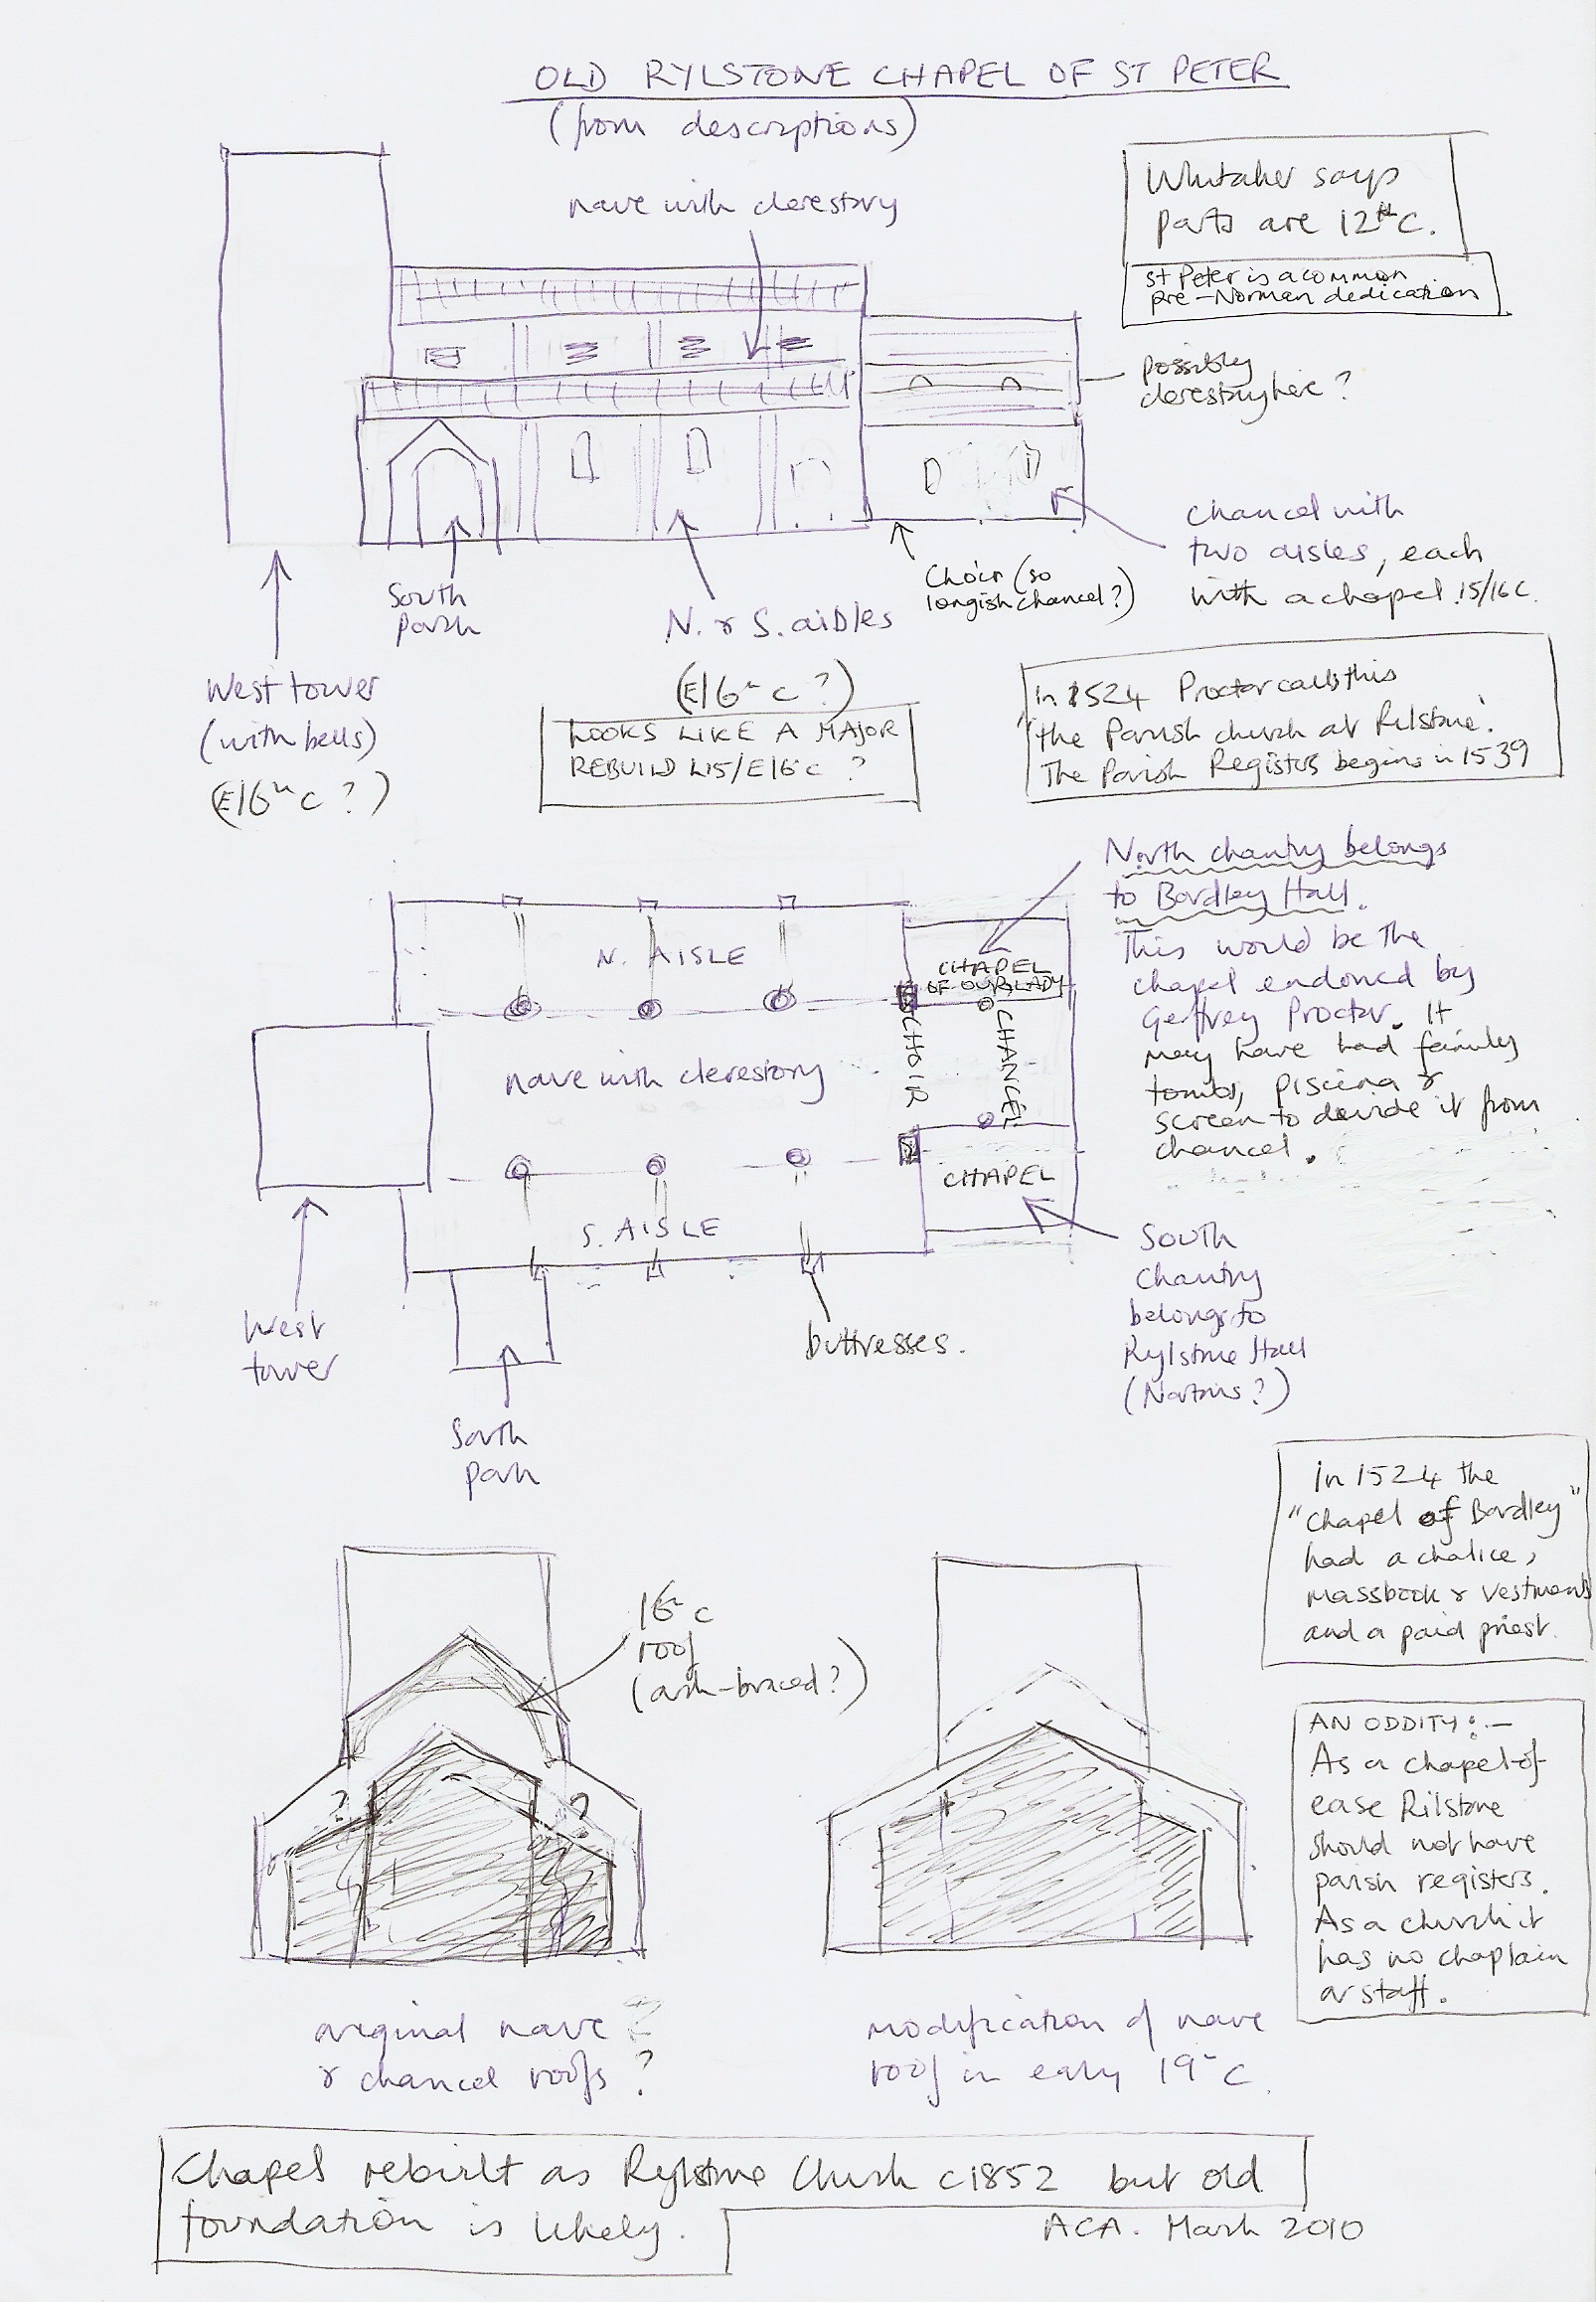 OLD RYLSTONE CHAPEL OF ST PETER
(from descriptions)
nave with clerestory
Whitaker says
parts are 12th C.
St Peter is a common
pre-Norman dedication
possibly
clerestory here?
Chancel with
two aisles, each
with a chapel. 15/16 C.
Choir (so
longish chancel?)
South
porch
N. & S. aisles
(E/16th c?)
West tower
(with bells)
(E/16th c?)
LOOKS LIKE A MAJOR
REBUILD L15/E16th c?
In 1524 Proctor calls this
'the Parish church at Rilstone'.
The Parish Registers begins in 1539
North chantry belongs
to Bordley Hall.
This would be the
chapel endowed by
Geffrey Proctor. It
may have had family
tombs, piscina &
screen to divide it from
chancel.
N. AISLE
CHAPEL
OF OUR LADY
CHOIR
CHANCEL
nave with clerestory
CHAPEL
S. AISLE
South
Chantry
belongs to
Rylstone Hall
(Nortons?)
West
tower
buttresses.
South
porch
In 1524 the
"Chapel of Bordley"
had a chalice,
massbook & vestments
and a paid priest.
16th c
roof
(arch-braced?)
?
?
AN ODDITY:-
As a chapel-of-
ease Rilstone
should not have
parish registers.
As a church it
has no chaplain
or staff.
original nave
& chancel roofs?
modification of nave
roof in early 19th C.
Chapel rebuilt as Rylstone Church c1852 but old
foundation is likely.
ACA. March 2010